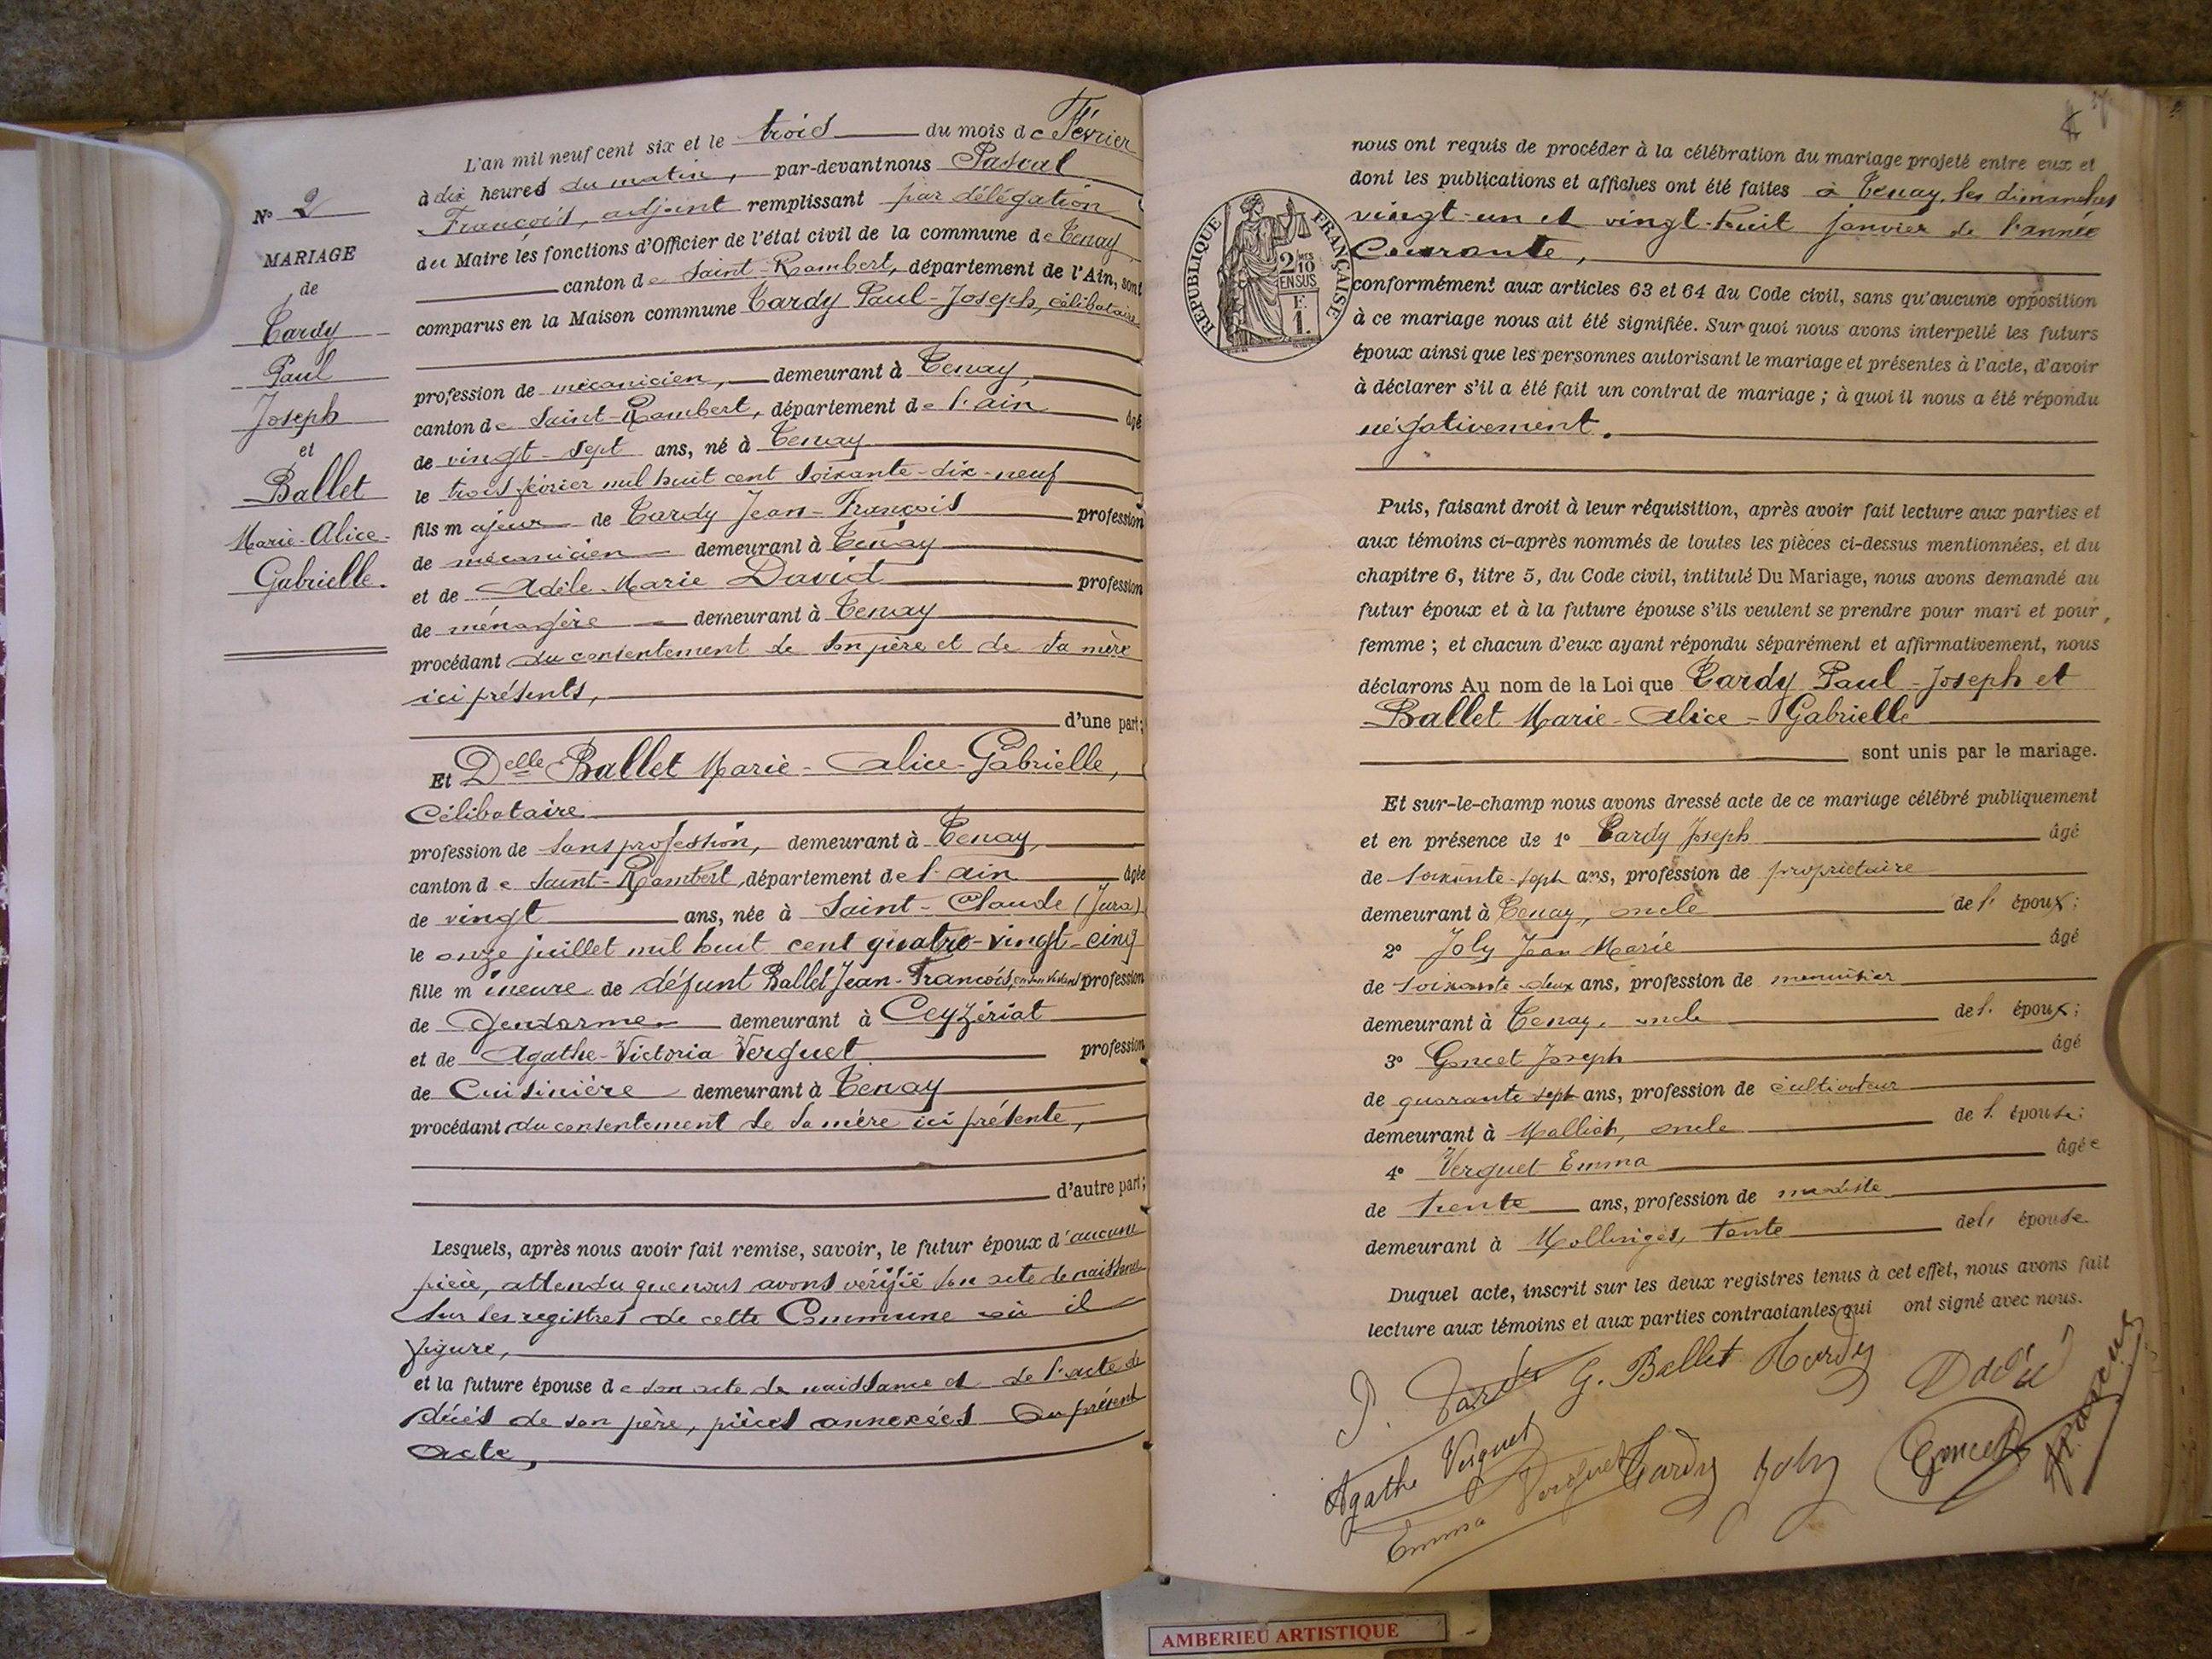 N° 2
MARIAGE
de
Tardy
Paul
Joseph
et
Ballet
Marie-Alice-
Gabrielle.
L'an mil neuf cent six et le trois du mois de Février
à dix heures du matin, par-devant nous Pascal
François, adjoint remplissant par délégation
du Maire les fonctions d'Officier de l'état civil de la commune de Tenay
canton de Saint-Rambert, département de l'Ain, sont
comparus en la Maison commune Tardy Paul-Joseph, célibataire
profession de mécanicien, demeurant à Tenay,
canton de Saint-Rambert, département de l'ain âgé
de vingt-sept ans, né à Tenay
le trois février mil huit cent soixante-dix-neuf
fils majeur de Tardy Jean-François profession
de mécanicien demeurant à Tenay
et de Adèle-Marie David profession
de ménagère demeurant à Tenay
procédant du consentement de son père et de sa mère
ici présents,
d'une part;
Et Delle Ballet Marie-Alice-Gabrielle,
Célibataire
profession de sans profession, demeurant à Tenay,
canton de Saint-Rambert, département de l'ain âgée
de vingt ans, née à Saint-Claude (Jura)
le onze juillet mil huit cent quatre-vingt-cinq
fille mineure de défunt Ballet Jean-François, en son vivant profession
de Gendarme demeurant à Ceyzériat
et de Agathe-Victoria Verguet profession
de Cuisinière demeurant à Tenay
procédant du consentement de sa mère ici présente,
d'autre part;
Lesquels, après nous avoir fait remise, savoir, le futur époux d'aucune
pièce, attendu que nous avons vérifié son acte de naissance
sur les registres de cette Commune où il
figure,
et la future épouse de son acte de naissance et de l'acte de
décès de son père, pièces annexées au présent
acte,
nous ont requis de procéder à la célébration du mariage projeté entre eux et
dont les publications et affiches ont été faites à Tenay, les dimanches
vingt-un et vingt-huit janvier de l'année
Courante,
RÉPUBLIQUE FRANÇAISE
2 MES
10
EN SUS
F.
1.
conformément aux articles 63 et 64 du Code civil, sans qu'aucune opposition
à ce mariage nous ait été signifiée. Sur quoi nous avons interpellé les futurs
époux ainsi que les personnes autorisant le mariage et présentes à l'acte, d'avoir
à déclarer s'il a été fait un contrat de mariage ; à quoi il nous a été répondu
négativement.
Puis, faisant droit à leur réquisition, après avoir fait lecture aux parties et
aux témoins ci-après nommés de toutes les pièces ci-dessus mentionnées, et du
chapitre 6, titre 5, du Code civil, intitulé Du Mariage, nous avons demandé au
futur époux et à la future épouse s'ils veulent se prendre pour mari et pour
femme ; et chacun d'eux ayant répondu séparément et affirmativement, nous
déclarons Au nom de la Loi que Tardy Paul-Joseph et
Ballet Marie-Alice-Gabrielle
sont unis par le mariage.
Et sur-le-champ nous avons dressé acte de ce mariage célébré publiquement
et en présence de 1° Tardy Joseph âgé
de soixante-sept ans, profession de propriétaire
demeurant à Tenay, oncle de l'époux;
2° Joly Jean Marie âgé
de soixante-deux ans, profession de menuisier
demeurant à Tenay, oncle de l'époux;
3° Goncet Joseph âgé
de quarante sept ans, profession de cultivateur
demeurant à Malliat, oncle de l'épouse;
4° Verguet Emma âgée
de trente ans, profession de modiste
demeurant à Mollinges, tante de l'épouse
Duquel acte, inscrit sur les deux registres tenus à cet effet, nous avons fait
lecture aux témoins et aux parties contractantes qui ont signé avec nous.
P. Tardy G. Ballet Tardy David
Agathe Verguet Tardy Joly Goncet
Emma Verguet
AMBERIEU ARTISTIQUE